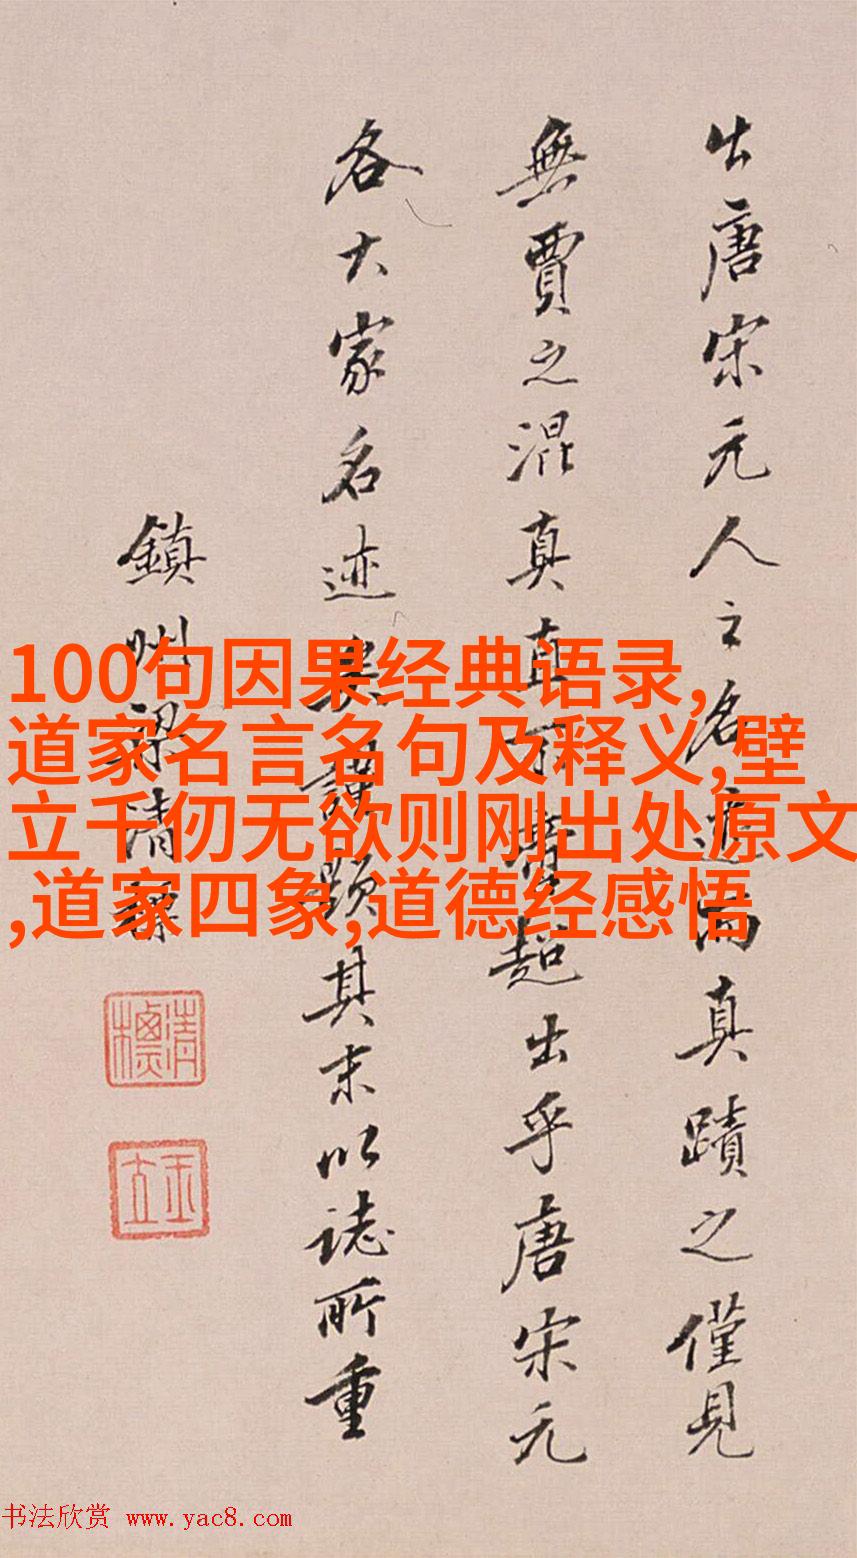 出唐宋元人之名而真蹟之僅見
無賈之混真真可超出乎唐宋元
各大家名迹矣謹題其末以誌所重
鎮州梁清標
100句因果经典语录,
道家名言名句及释义,壁
立千仞无欲则刚出处原文
,道家四象,道德经感悟
清標
玉立
书法欣赏 www.yac8.com